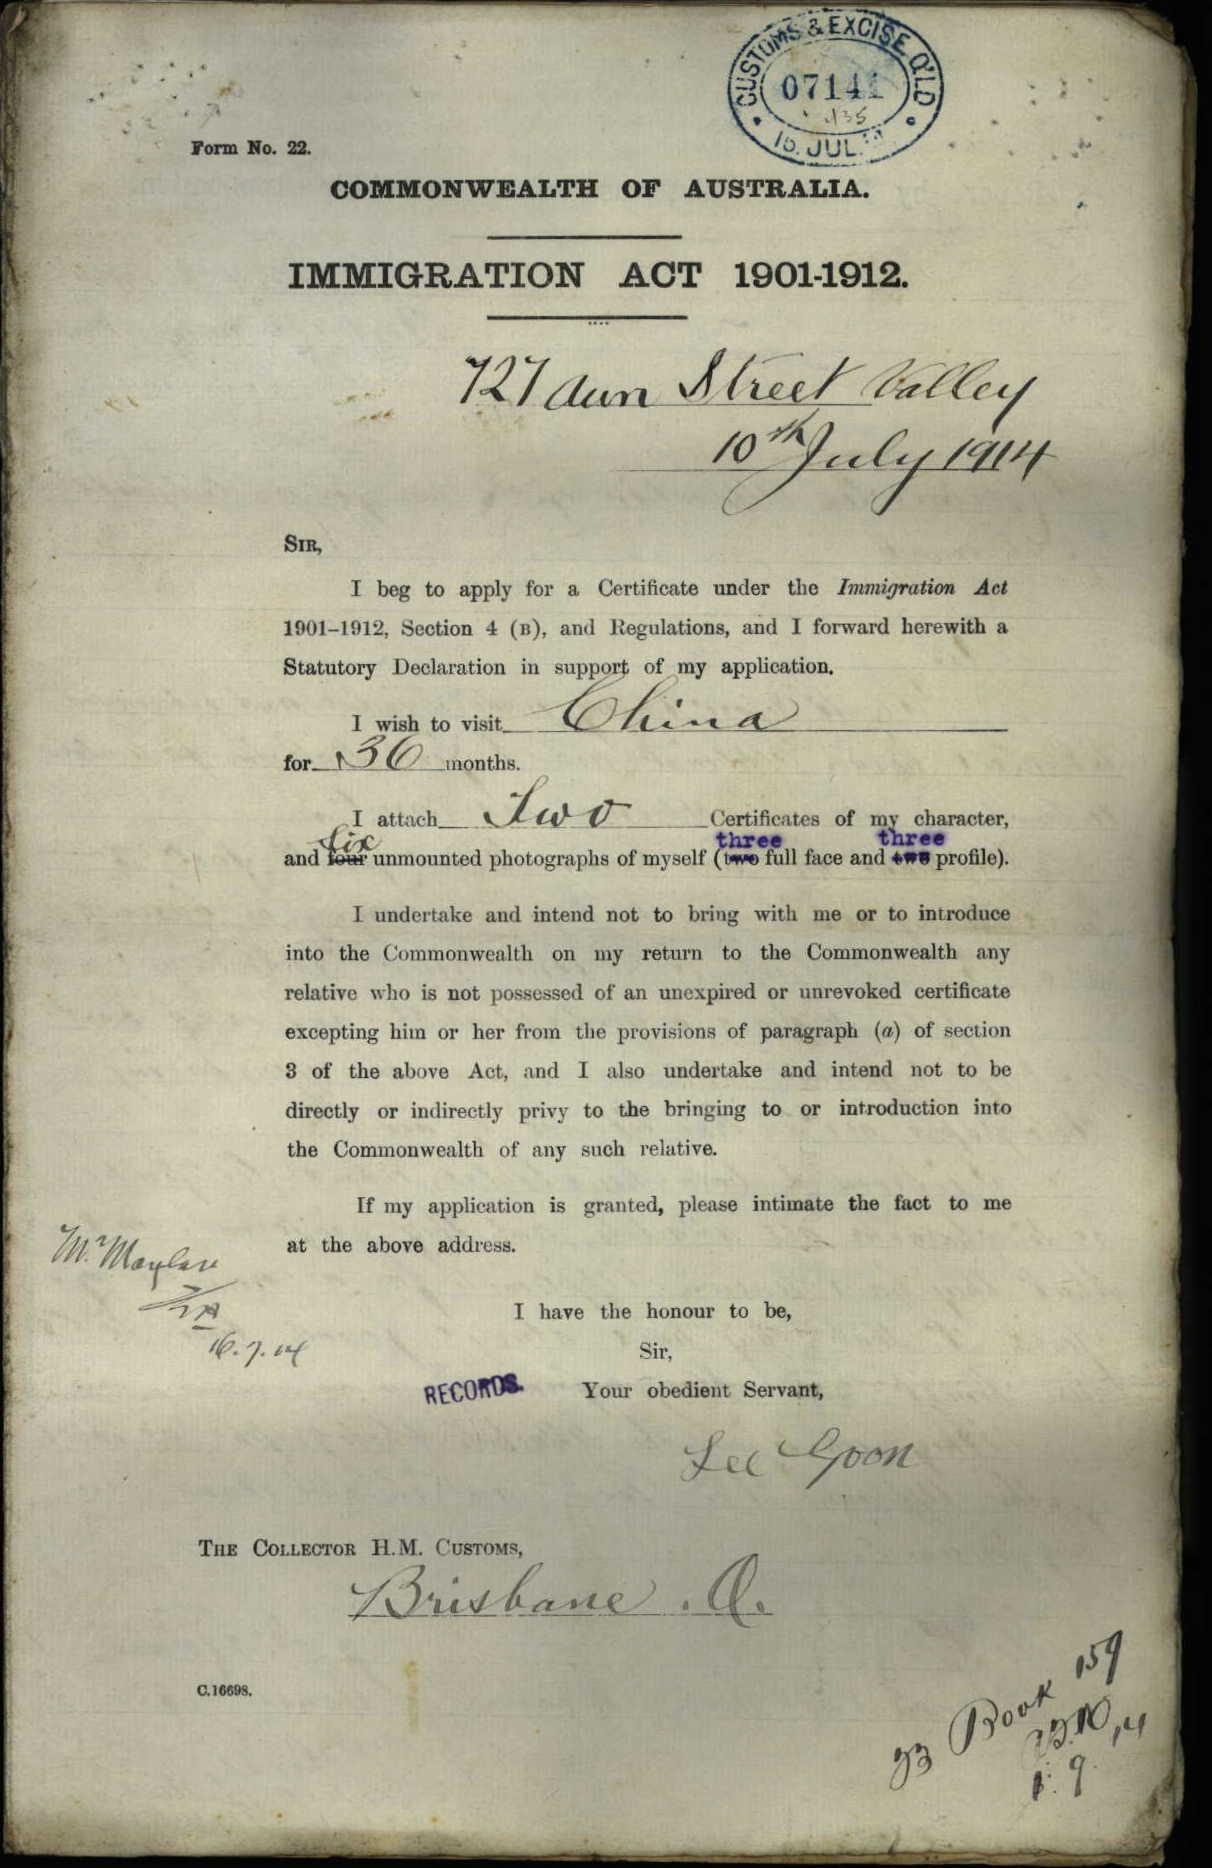 CUSTOMS & EXCISE Q'LD
07141
15. JUL.
Form No. 22.
COMMONWEALTH OF AUSTRALIA.
IMMIGRATION ACT 1901-1912.
727 Ann Street Valley
10th July 1914
SIR,
I beg to apply for a Certificate under the Immigration Act
1901-1912, Section 4 (B), and Regulations, and I forward herewith a
Statutory Declaration in support of my application.
I wish to visit China
for 36 months.
I attach Two Certificates of my character,
six three three
and four unmounted photographs of myself (two full face and two profile).
I undertake and intend not to bring with me or to introduce
into the Commonwealth on my return to the Commonwealth any
relative who is not possessed of an unexpired or unrevoked certificate
excepting him or her from the provisions of paragraph (a) of section
3 of the above Act, and I also undertake and intend not to be
directly or indirectly privy to the bringing to or introduction into
the Commonwealth of any such relative.
If my application is granted, please intimate the fact to me
at the above address.
Mr.
16.7.14
I have the honour to be,
Sir,
RECORDS.
Your obedient Servant,
Lee Goon
THE COLLECTOR H.M. CUSTOMS,
Brisbane. Q.
C.16698.
Book 159